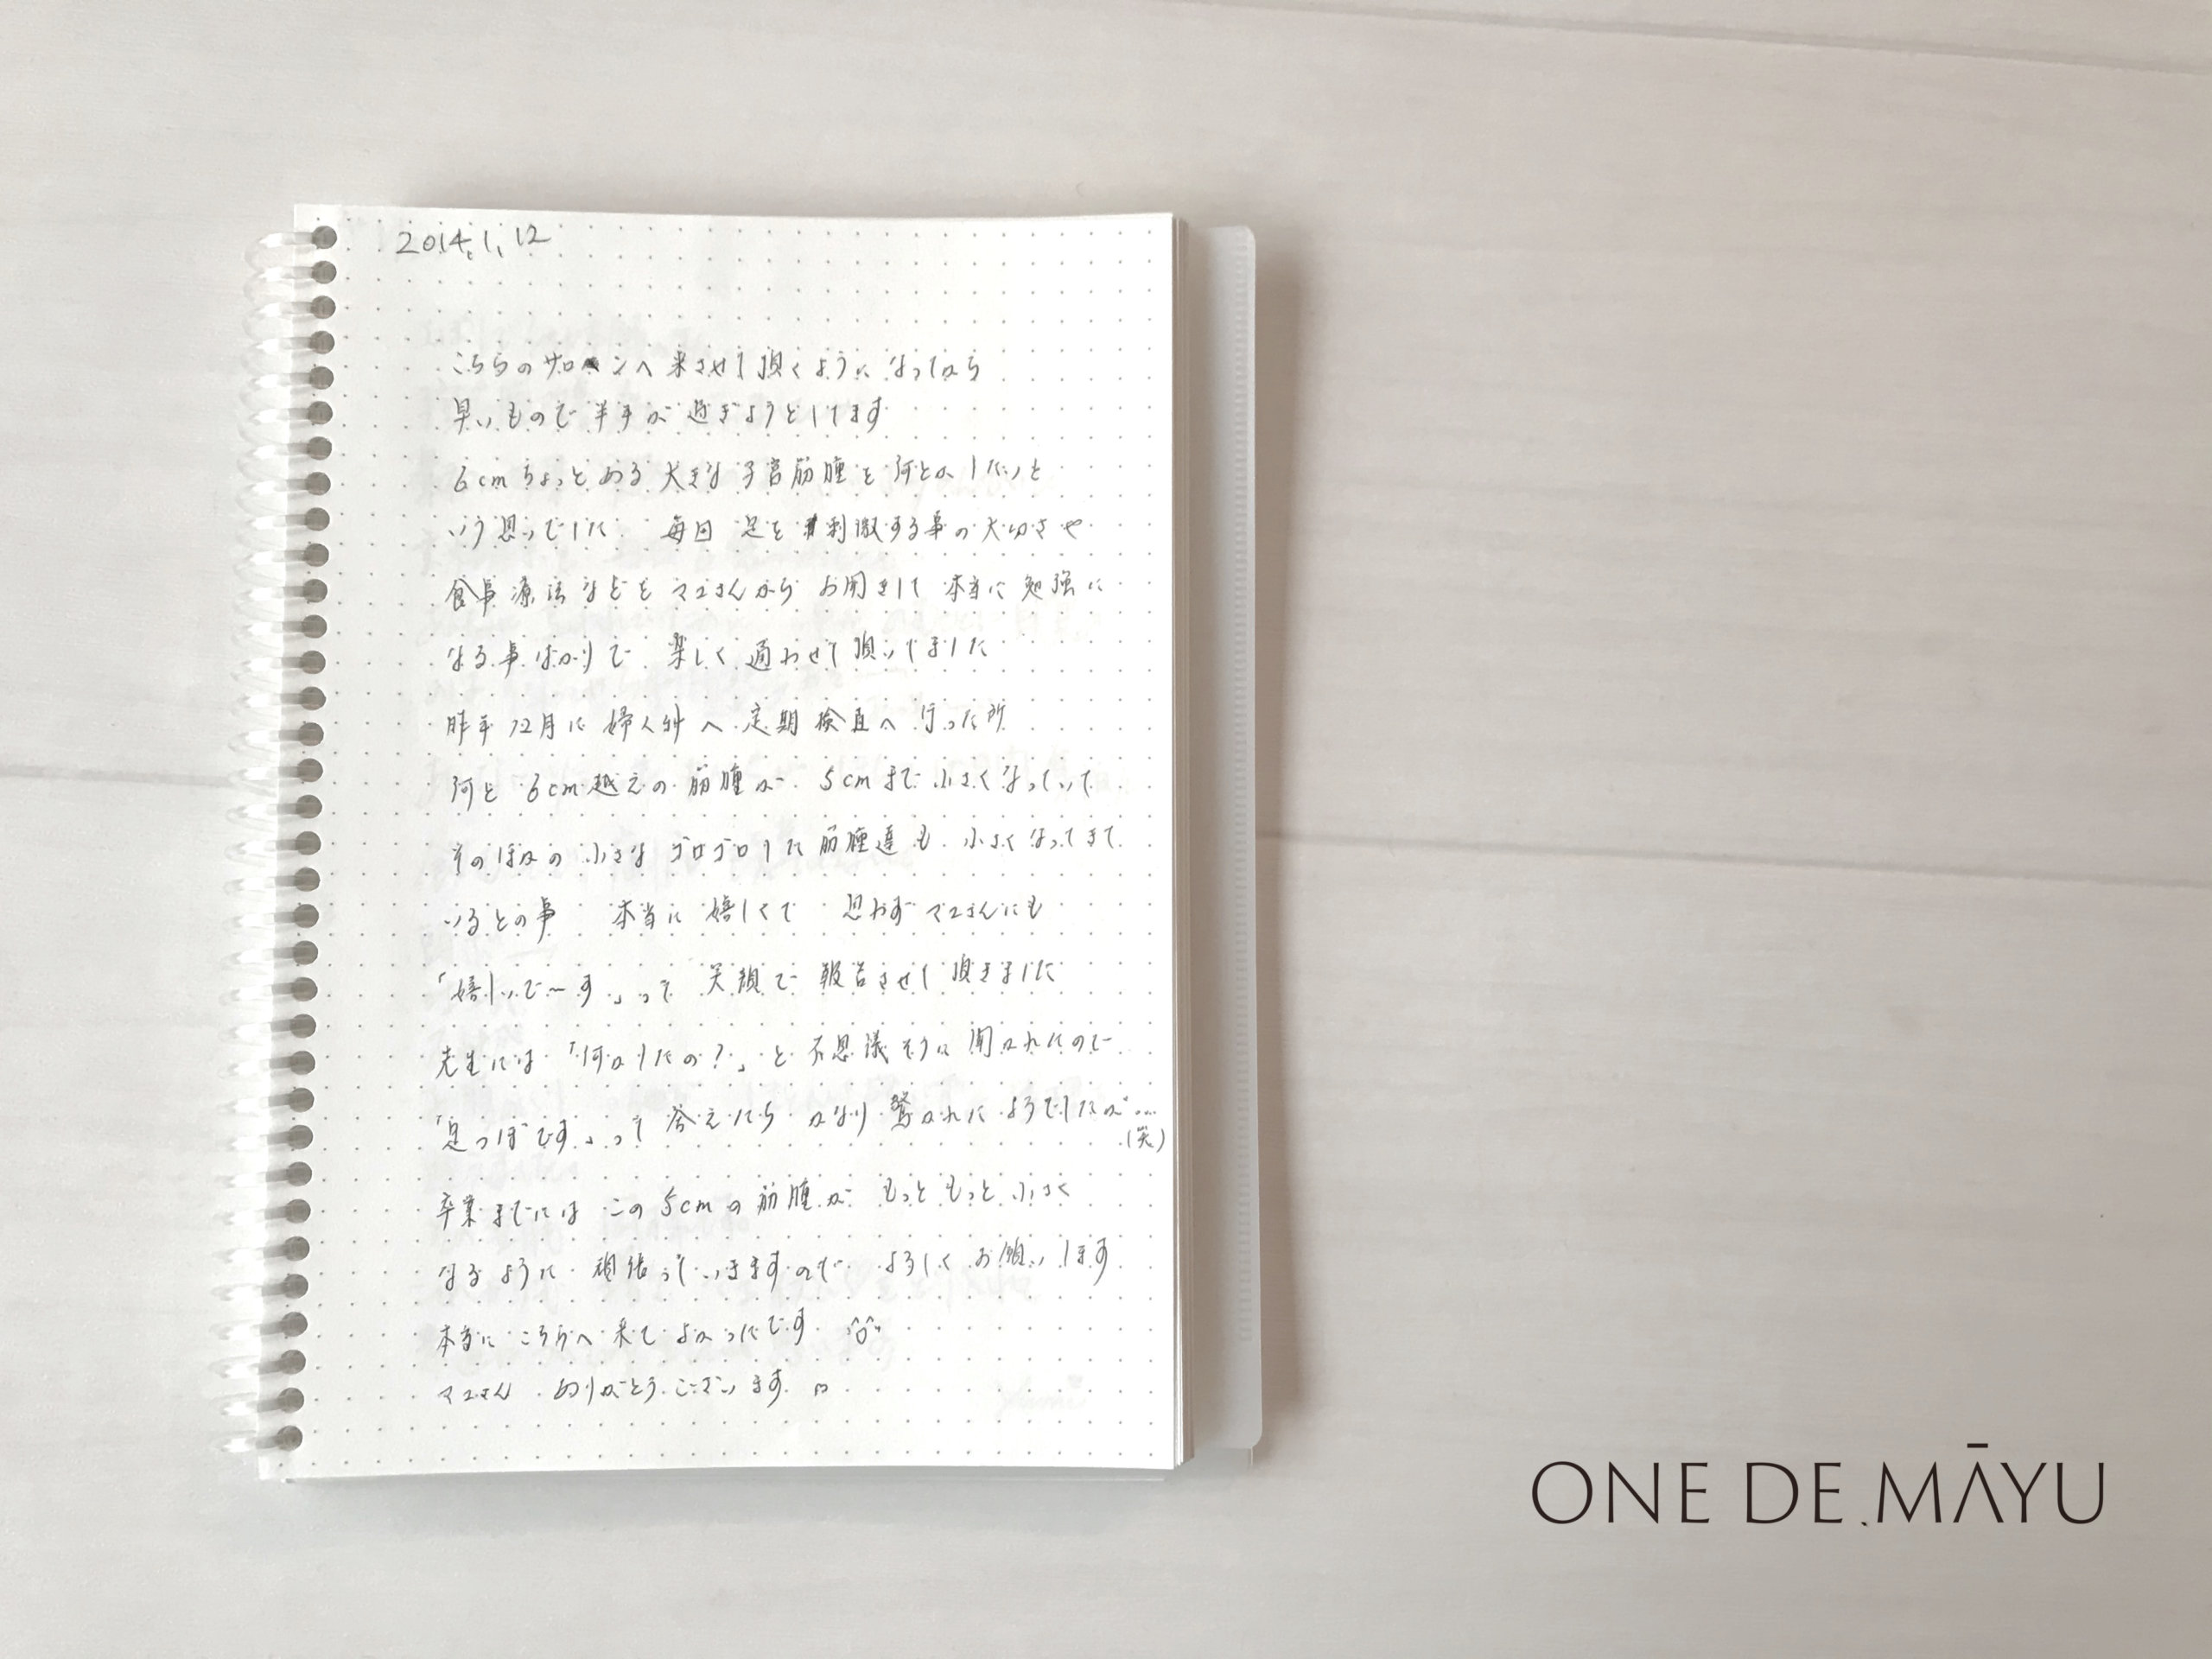 2014.1.12
こちらのサロンへ来させて頂くようになってから
早いもので半年が過ぎようとしてます
6cmちょっとある大きな子宮筋腫を何とかしたいと
いう思いでした 毎回 足を刺激する事の大切さや
食事療法などをマユさんからお聞きして 本当に勉強に
なる事ばかりで 楽しく通わせて頂いてました
昨年12月に婦人科へ定期検査へ行った所
何と 6cm越えの筋腫が 5cmまで小さくなっていて
そのほかの小さなゴロゴロした筋腫達も 小さくなってきて
いるとの事 本当に嬉しくて 思わずマユさんにも
「嬉しいで〜す」って 笑顔で報告させて頂きました
先生には「何かしたの?」と不思議そうに聞かれたので
「足つぼです」って答えたら かなり驚かれたようでしたが…
(笑)
卒業までには この5cmの筋腫が もっともっと小さく
なるように 頑張っていきますので よろしくお願いします
本当に こちらへ来てよかったです ^o^
マユさん ありがとうございます m
ONE DE MĀYU